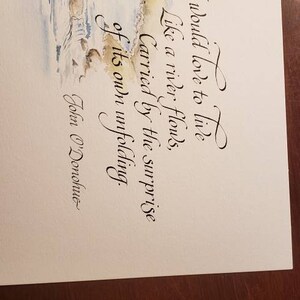 would love to live
Like a river flows,
Carried by the surprise
of its own unfolding.
John O'Donohue